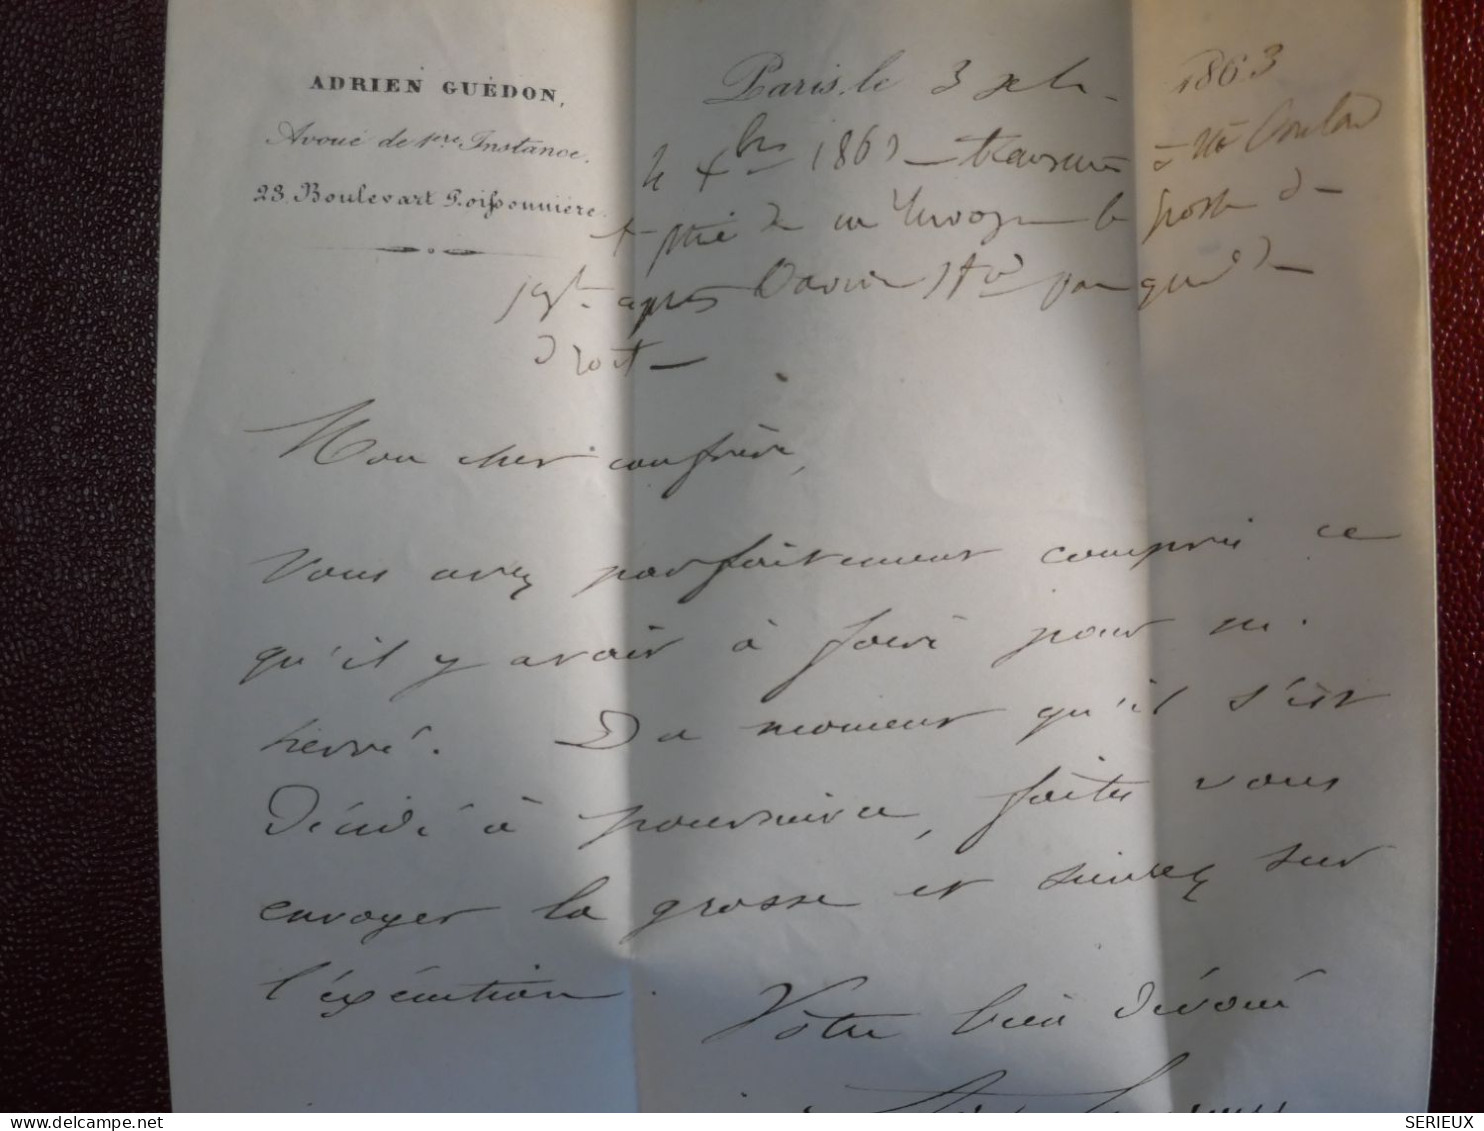 ADRIEN GUÉDON,
Avoué de 1re Instance.
23, Boulevart Poissonnière.
Paris, le 3 Xbre 1863
4 Xbre 1863
prié de m'envoyer la grosse d
après
droit
Mon cher confrère,
Vous avez parfaitement compris ce
qu'il y avait à faire pour M.
hervé. Du moment qu'il s'est
décidé à poursuivre, faites vous
envoyer la grosse et suivez sur
l'éxécution.
Votre bien dévoué
SERIEUX